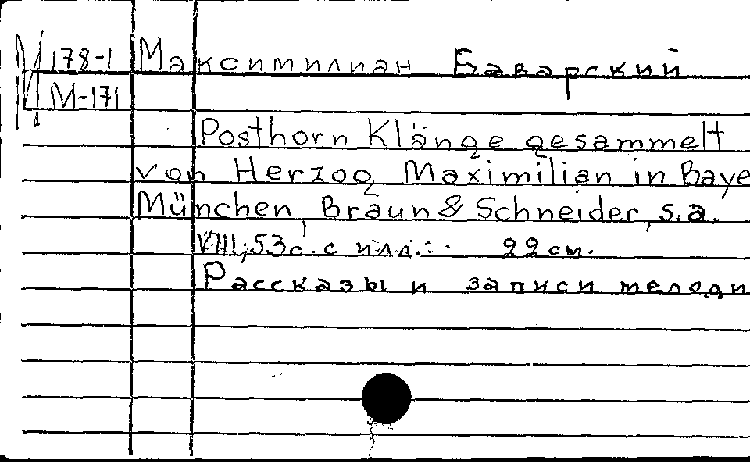 178-1 Максимилиан Баварский
М-171
Posthorn Klänge gesammelt
von Herzog Maximilian in Baye
München, Braun & Schneider, s.a.
VIII, 53 с. с илл. 22 см.
Рассказы и записи мелоди